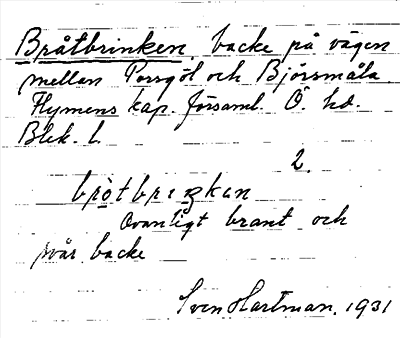 Bråtbrinken, backe på vägen
mellan Porsgöl och Björsmåla
Flymens kap. församl. Ö. hd.
Blek. l.
2.
bròtbrıŋkan
Ovanligt brant och
svår backe
Sven Hartman. 1931